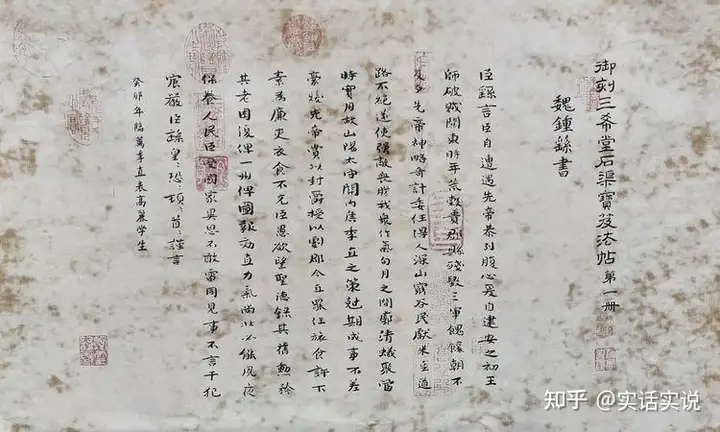 御刻三希堂石渠寶笈法帖 第一册
魏鍾繇書
臣繇言臣自遭遇先帝忝列腹心爰自建安之初王
師破賊關東時年荒穀貴郡縣殘毀三軍餽饟朝不
及夕先帝神略奇計委任得人深山窮谷民獻米豆道
路不絕遂使强敵喪膽我衆作氣旬月之間廓清蟻聚當
時實用故山陽太守關內侯季直之策尅期成事不差
豪髮先帝賞以封爵授以劇郡今直罷任旅食許下
素爲廉吏衣食不充臣愚欲望聖德錄其舊勳矜
其老困復俾一州俾圖報効直力氣尚壯必能夙夜
保養人民臣受國家異恩不敢雷同見事不言干犯
宸嚴臣繇皇〻恐〻頓〻首〻謹言
癸卯年臨薦季直表高麗学生
知乎 @实话实说